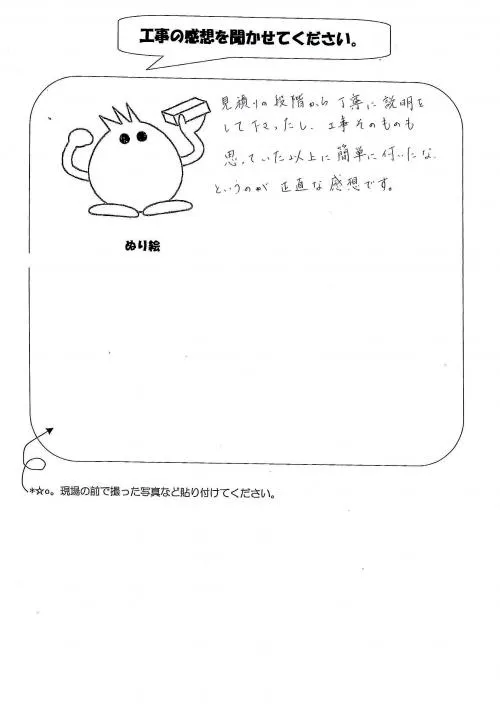 工事の感想を聞かせてください。
見積りの段階から丁寧に説明を
して下さったし、工事そのものも
思っていた以上に簡単に付いたな、
というのが正直な感想です。
ぬり絵
*☆o。現場の前で撮った写真など貼り付けてください。